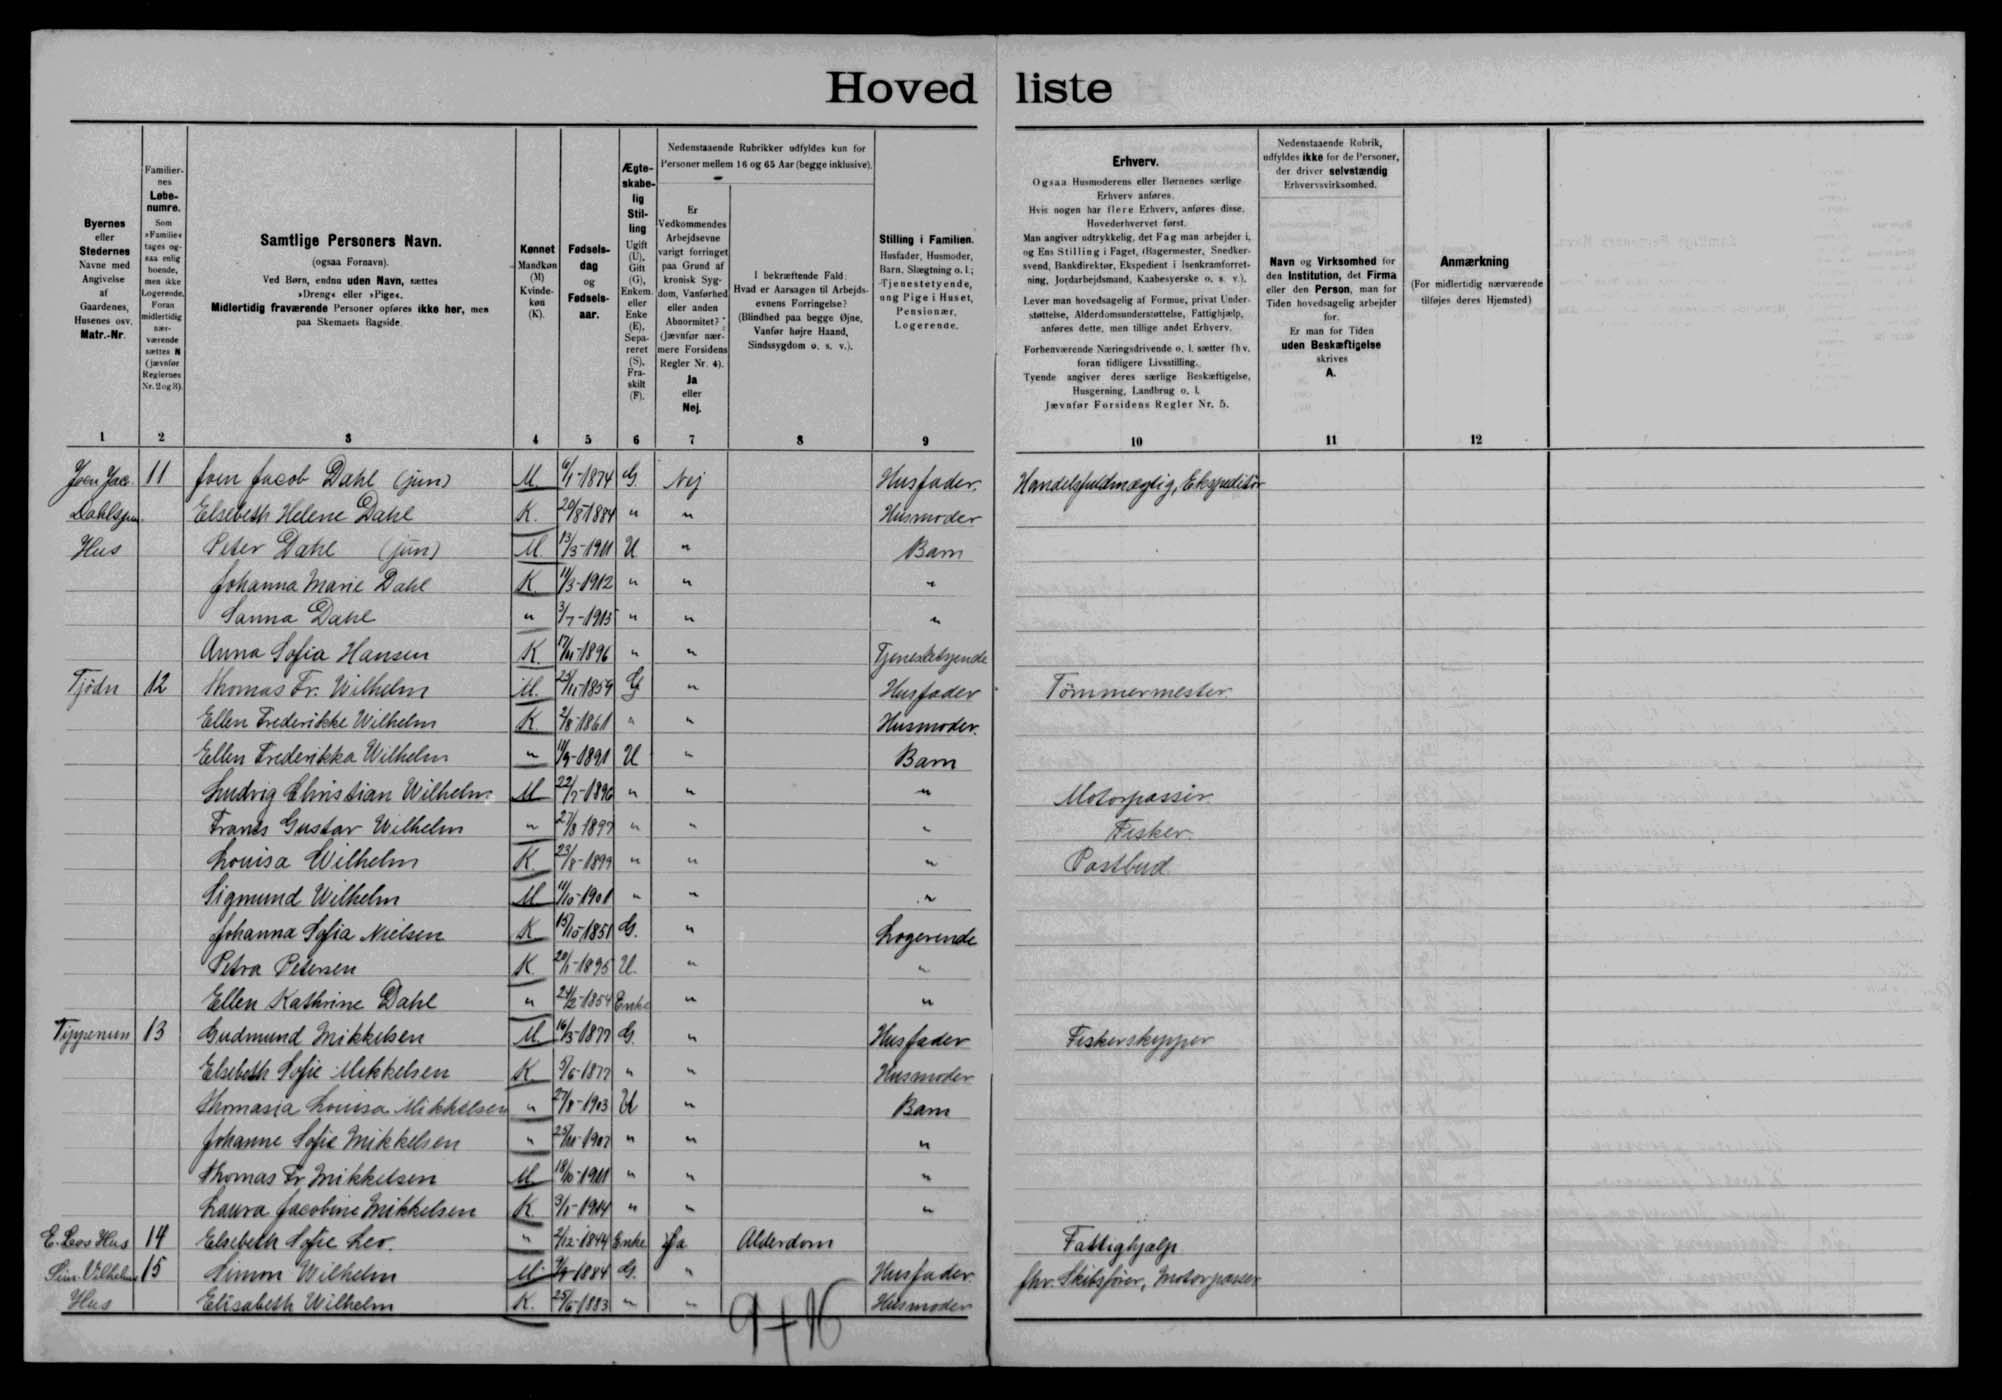 Hoved liste
Byernes eller Stedernes Navne med Angivelse af Gaardenes, Husenes osv. Matr.-Nr.
Familiernes Løbenumre. Som »Familie« tages ogsaa enlig boende, men ikke Logerende. Foran midlertidig nærværende sættes N (jævnfør Reglernes Nr. 2 og 3).
Samtlige Personers Navn.
(ogsaa Fornavn).
Ved Børn, endnu uden Navn, sættes
»Dreng« eller »Pige«.
Midlertidig fraværende Personer opføres ikke her, men
paa Skemaets Bagside.
Kønnet Mandkøn (M) Kvindekøn (K).
Fødselsdag og Fødselsaar.
Ægteskabelig Stilling Ugift (U), Gift (G), Enkem. eller Enke (E), Separeret (S), Fraskilt (F).
Nedenstaaende Rubrikker udfyldes kun for
Personer mellem 16 og 65 Aar (begge inklusive).
Er Vedkommendes Arbejdsevne varigt forringet paa Grund af kronisk Sygdom, Vanførhed eller anden Abnormitet? (jævnfør nærmere Forsidens Regler Nr. 4). Ja eller Nej.
I bekræftende Fald: Hvad er Aarsagen til Arbejdsevnens Forringelse? (Blindhed paa begge Øjne, Vanfør højre Haand, Sindssygdom o. s. v.).
Stilling i Familien.
Husfader, Husmoder, Barn, Slægtning o. l.; Tjenestetyende, ung Pige i Huset, Pensionær, Logerende.
Erhverv.
Ogsaa Husmoderens eller Børnenes særlige
Erhverv anføres.
Hvis nogen har flere Erhverv, anføres disse,
Hovederhvervet først.
Man angiver udtrykkelig, det Fag man arbejder i,
og Ens Stilling i Faget, (Bagermester, Snedker-
svend, Bankdirektør, Ekspedient i Isenkramforret-
ning, Jordarbejdsmand, Kaabesyerske o. s. v.).
Lever man hovedsagelig af Formue, privat Under-
støttelse, Alderdomsunderstøttelse, Fattighjælp,
anføres dette, men tillige andet Erhverv.
Forhenværende Næringsdrivende o. l. sætter fhv.
foran tidligere Livsstilling.
Tyende angiver deres særlige Beskæftigelse,
Husgerning, Landbrug o. l.
Jævnfør Forsidens Regler Nr. 5.
Nedenstaaende Rubrik,
udfyldes ikke for de Personer,
der driver selvstændig
Erhvervsvirksomhed.
Navn og Virksomhed for
den Institution, det Firma
eller den Person, man for
Tiden hovedsagelig arbejder
for.
Er man for Tiden
uden Beskæftigelse
skrives
A.
Anmærkning
(For midlertidig nærværende
tilføjes deres Hjemsted)
1 2 3 4 5 6 7 8 9 10 11 12
Joen Jac. 11 Joen Jacob Dahl (jun) M. 6/1-1874 G. Nej Husfader. Handelsfuldmægtig, Ekspeditør
Dahls jun. Elsebeth Helene Dahl K. 20/8-1884 " " Husmoder
Hus Peter Dahl (jun) M 13/3-1911 U " Barn
Johanna Marie Dahl K. 11/3-1912 " " "
Sanna Dahl " 3/7-1915 " " "
Anna Sofia Hansen K. 17/11-1896 " " Tjenestetyende
Tjödn 12 Thomas Fr. Wilhelm M. 25/11-1859 G " Husfader Tømmermester
Ellen Frederikke Wilhelm K. 2/8-1861 " " Husmoder.
Ellen Frederikka Wilhelm " 11/9-1891 U " Barn
Ludvig Christian Wilhelm M 22/7-1896 " " " Motorpasser
Frants Gustav Wilhelm " 27/8 1897 " " " Fisker.
Louisa Wilhelm K. 23/8-1899 " " " Postbud
Sigmund Wilhelm M 11/10-1901 " " "
Johanna Sofia Nielsen K 15/10-1851 G. " Logerende
Petra Petersen K. 20/1-1895 U. " "
Ellen Kathrine Dahl " 24/2-1854 Enke " "
13 Gudmund Mikkelsen M. 16/3-1877 G. " Husfader Fiskerskipper
Elsebeth Sofie Mikkelsen K. 5/6-1877 " " Husmoder
Thomasia Louisa Mikkelsen " 27/8-1903 U " Barn
Johanne Sofie Mikkelsen " 25/10-1907 " " "
Thomas Fr. Mikkelsen M. 18/10-1911 " " "
Laura Jacobine Mikkelsen K. 3/1-1914 " " "
E. Leos Hus 14 Elsebeth Sofie Leo. " 2/12-1844 Enke Ja Alderdom Fattighjælp
Sim. Vilhelms 15 Simon Wilhelm M. 1884 G. " Husfader fhv. Skibsfører, Motorpasser
Hus Elisabeth Wilhelm K. 25/6-1883 " " Husmoder
9+16